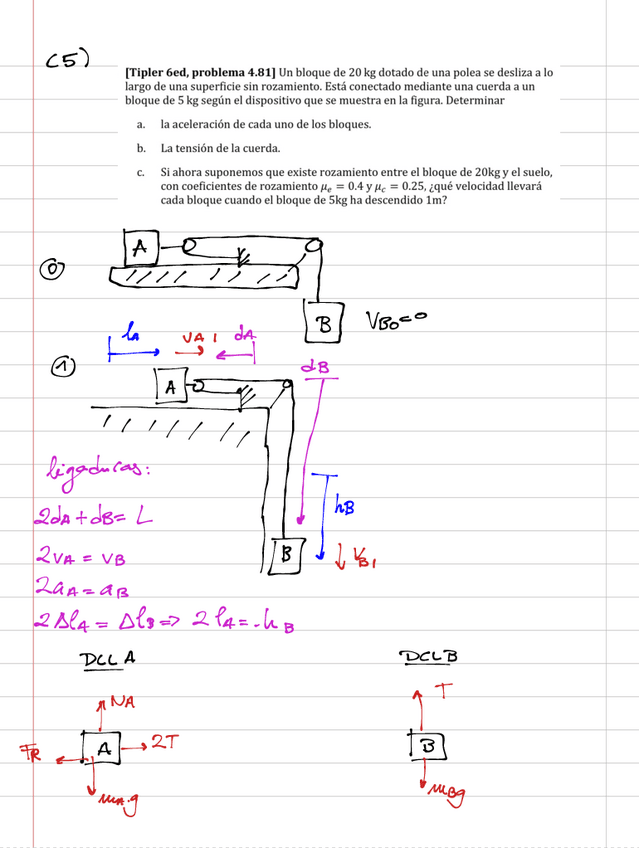 (5)
[Tipler 6ed, problema 4.81] Un bloque de 20 kg dotado de una polea se desliza a lo
largo de una superficie sin rozamiento. Está conectado mediante una cuerda a un
bloque de 5 kg según el dispositivo que se muestra en la figura. Determinar
a. la aceleración de cada uno de los bloques.
b. La tensión de la cuerda.
c. Si ahora suponemos que existe rozamiento entre el bloque de 20kg y el suelo,
con coeficientes de rozamiento μe = 0.4 y μc = 0.25, ¿qué velocidad llevará
cada bloque cuando el bloque de 5kg ha descendido 1m?
A
0
B VB0=0
lA VA1 dA
1
dB
A
ligaduras:
hB
2dA + dB = L
2VA = VB
B VB1
2aA = aB
2ΔlA = ΔlB => 2lA = -hB
DCL A DCL B
NA T
FR A 2T B
mA.g mBg